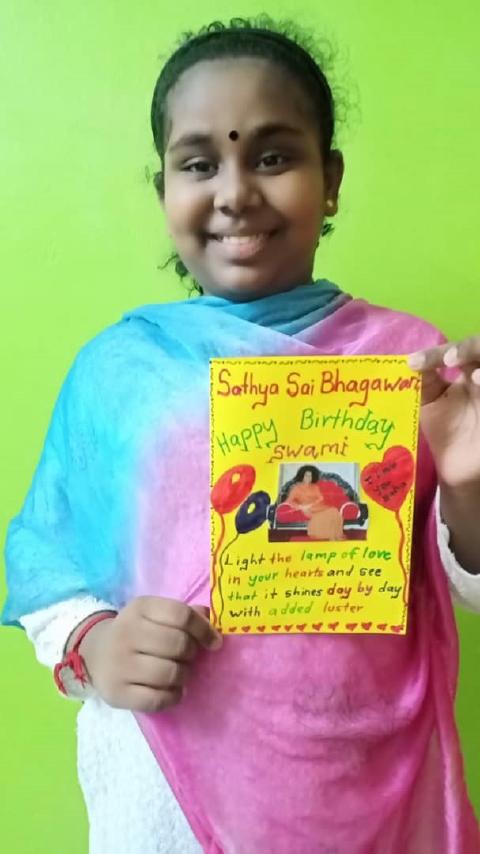 Sathya Sai Bhagawan
Happy Birthday
Swami
Light the lamp of love
in your hearts and see
that it shines day by day
with added luster